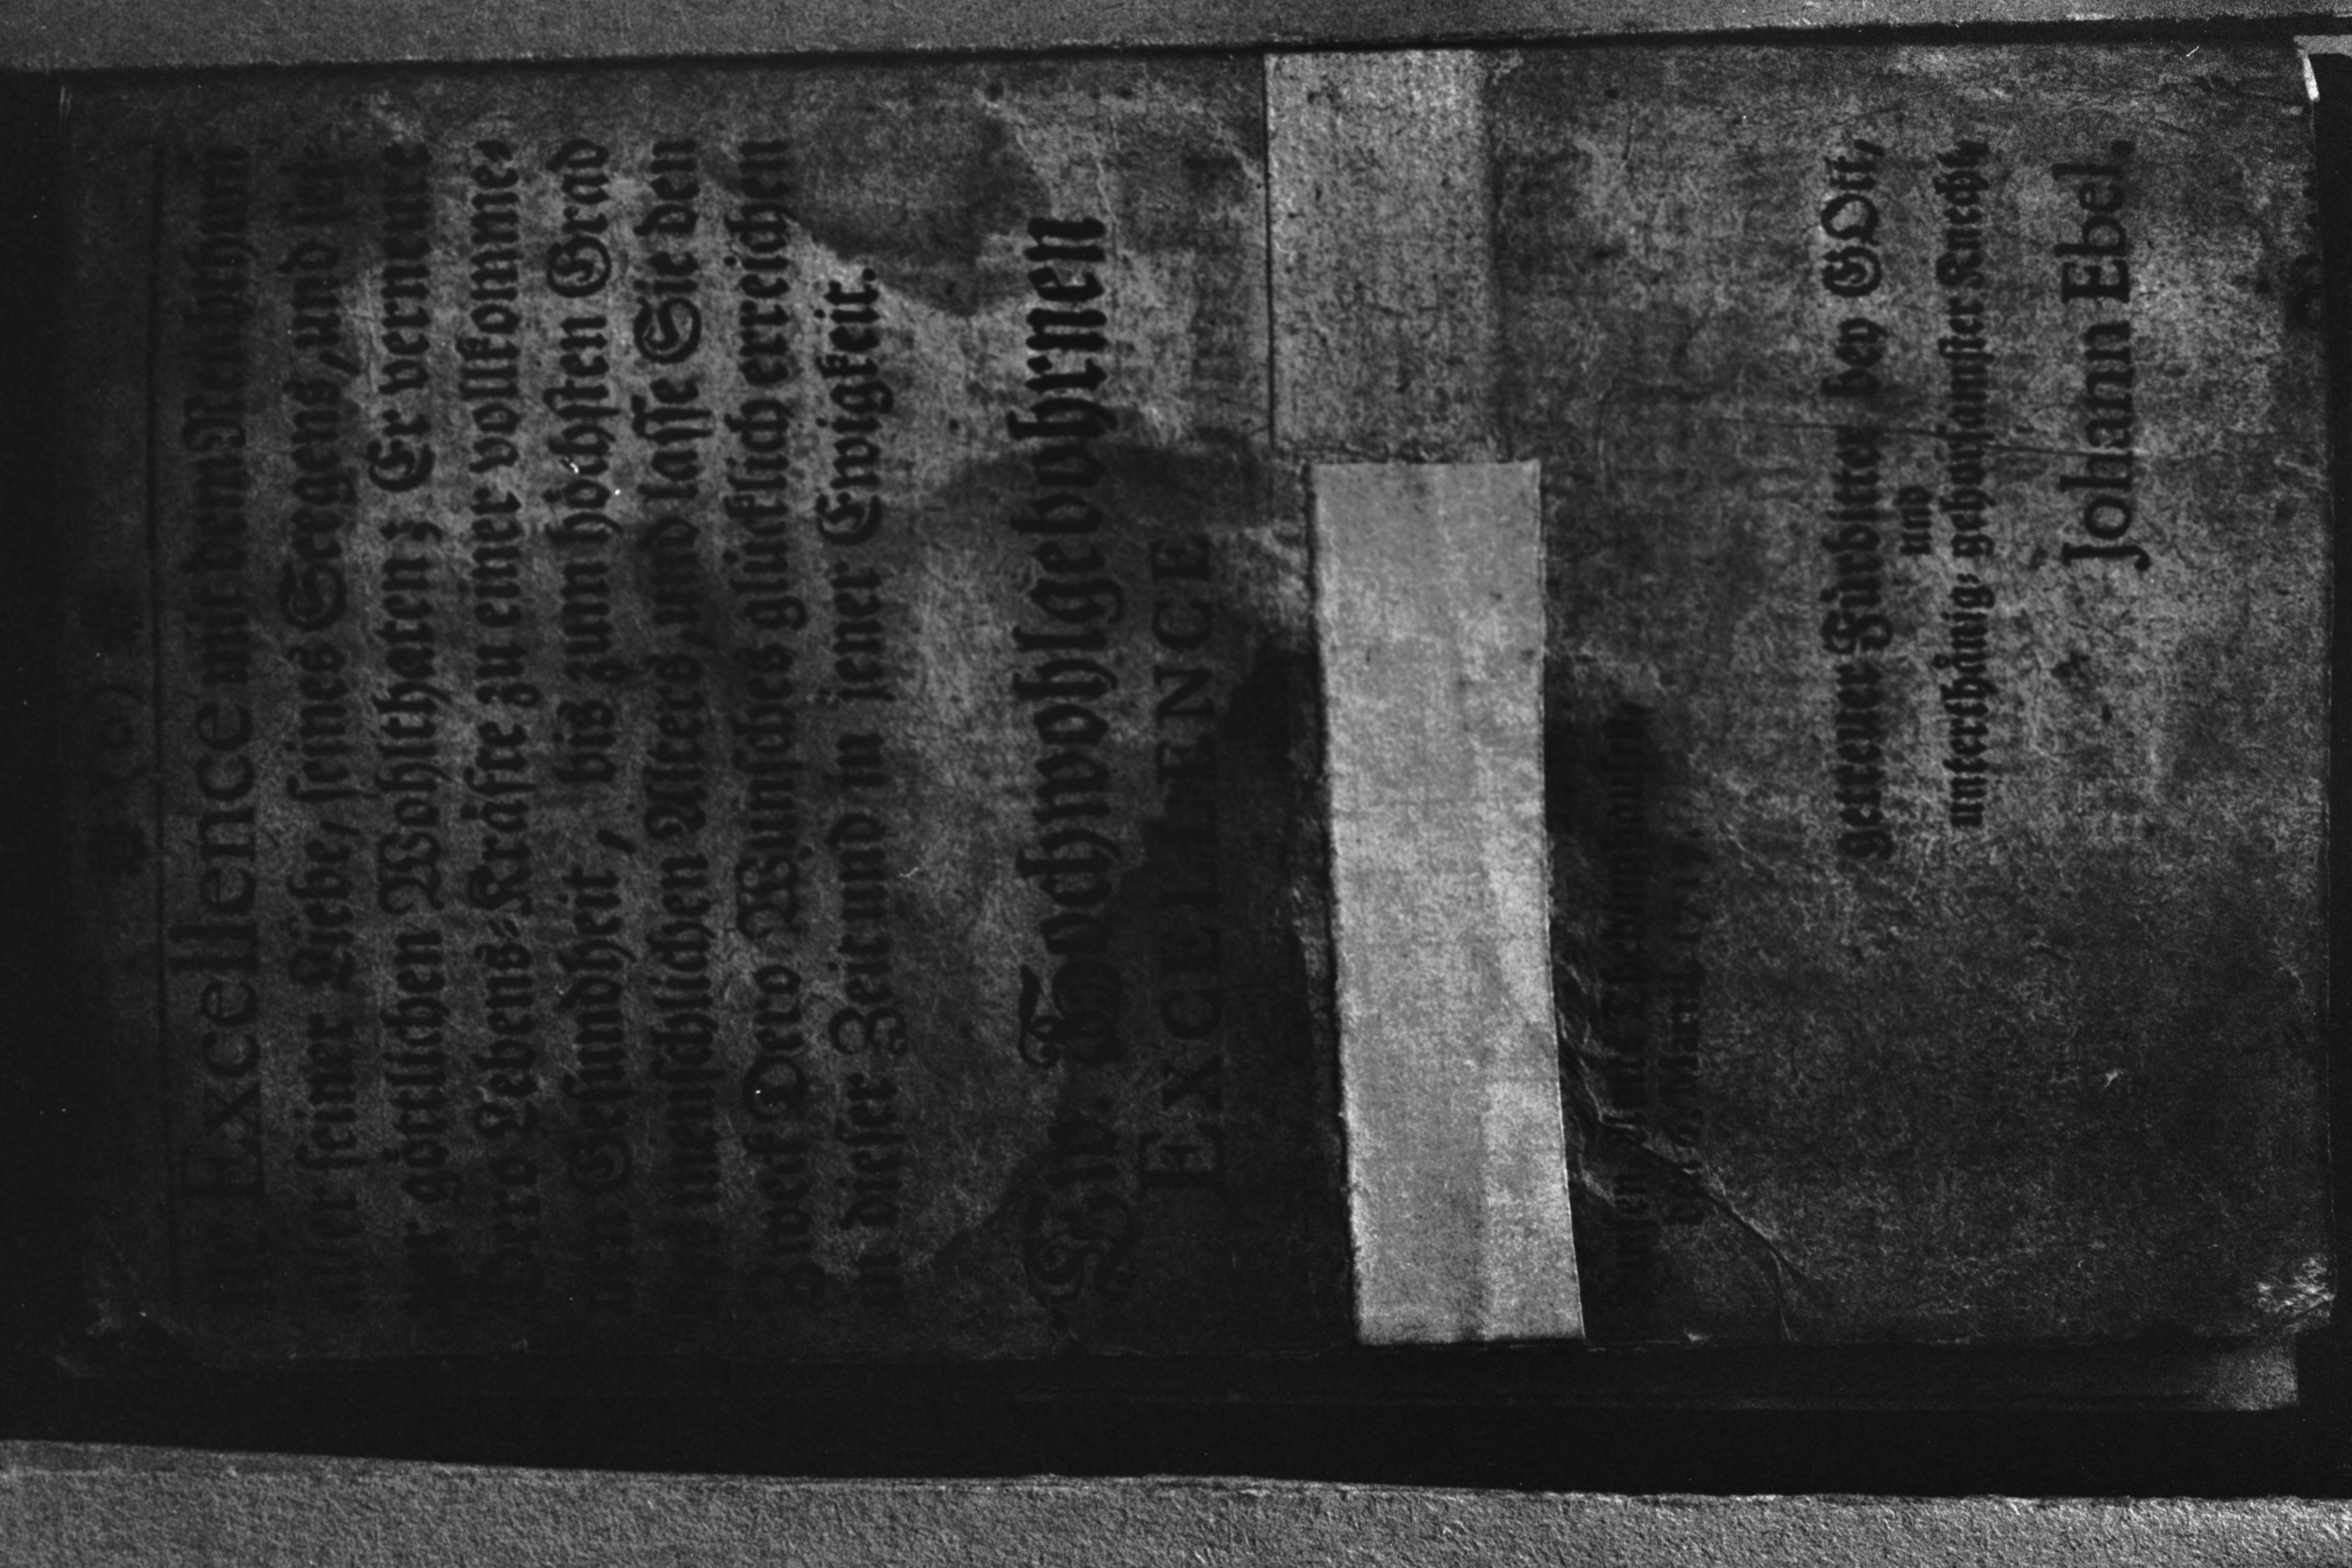 Excellence mit dem Reichthum
seiner Liebe, seines Seegens, und
göttlichen Wohlthaten; Er verneue
Dero Lebens-Kräfte zu einer vollkomme-
nen Gesundheit, biß zum höchsten Grad
menschlichen Alters, und lasse Sie den
Zweck Dero Wunsches glücklich erreichen
in dieser Zeit und in jener Ewigkeit.
Ew. Hochwohlgebohrnen
EXCELLENCE
getreuer Fürbitter bey GOtt,
und
unterthänig-gehorsamster Knecht,
Johann Ebel.